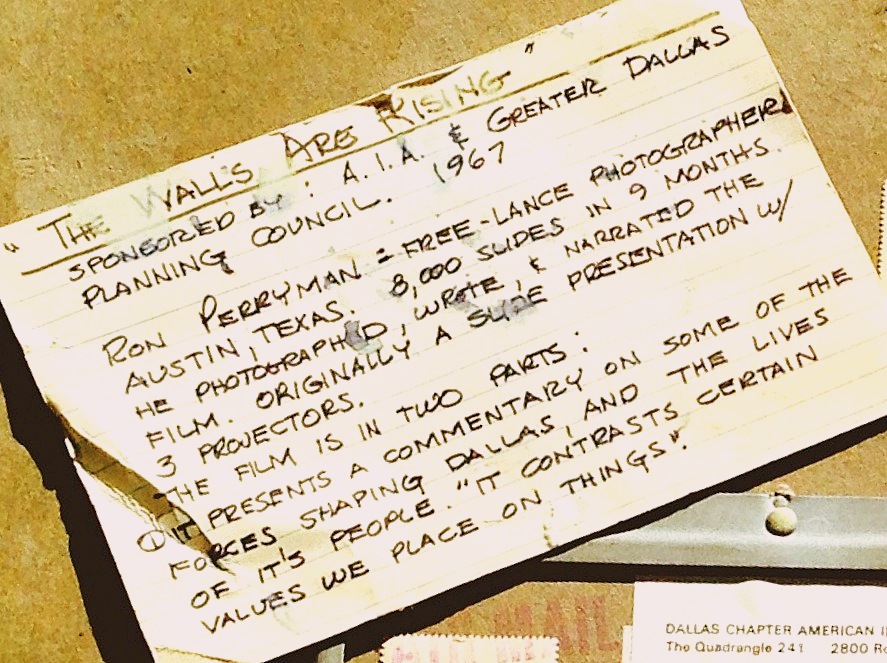 "THE WALLS ARE RISING"
SPONSORED BY: A.I.A. & GREATER DALLAS
PLANNING COUNCIL. 1967
RON PERRYMAN = FREE-LANCE PHOTOGRAPHER
AUSTIN, TEXAS. 8,000 SLIDES IN 9 MONTHS.
HE PHOTOGRAPHED, WROTE, & NARRATED THE
FILM. ORIGINALLY A SLIDE PRESENTATION W/
3 PROJECTORS.
THE FILM IS IN TWO PARTS:
① IT PRESENTS A COMMENTARY ON SOME OF THE
FORCES SHAPING DALLAS, AND THE LIVES
OF IT'S PEOPLE. "IT CONTRASTS CERTAIN
VALUES WE PLACE ON THINGS".
MAIL
DALLAS CHAPTER AMERICAN
The Quadrangle 241 2800